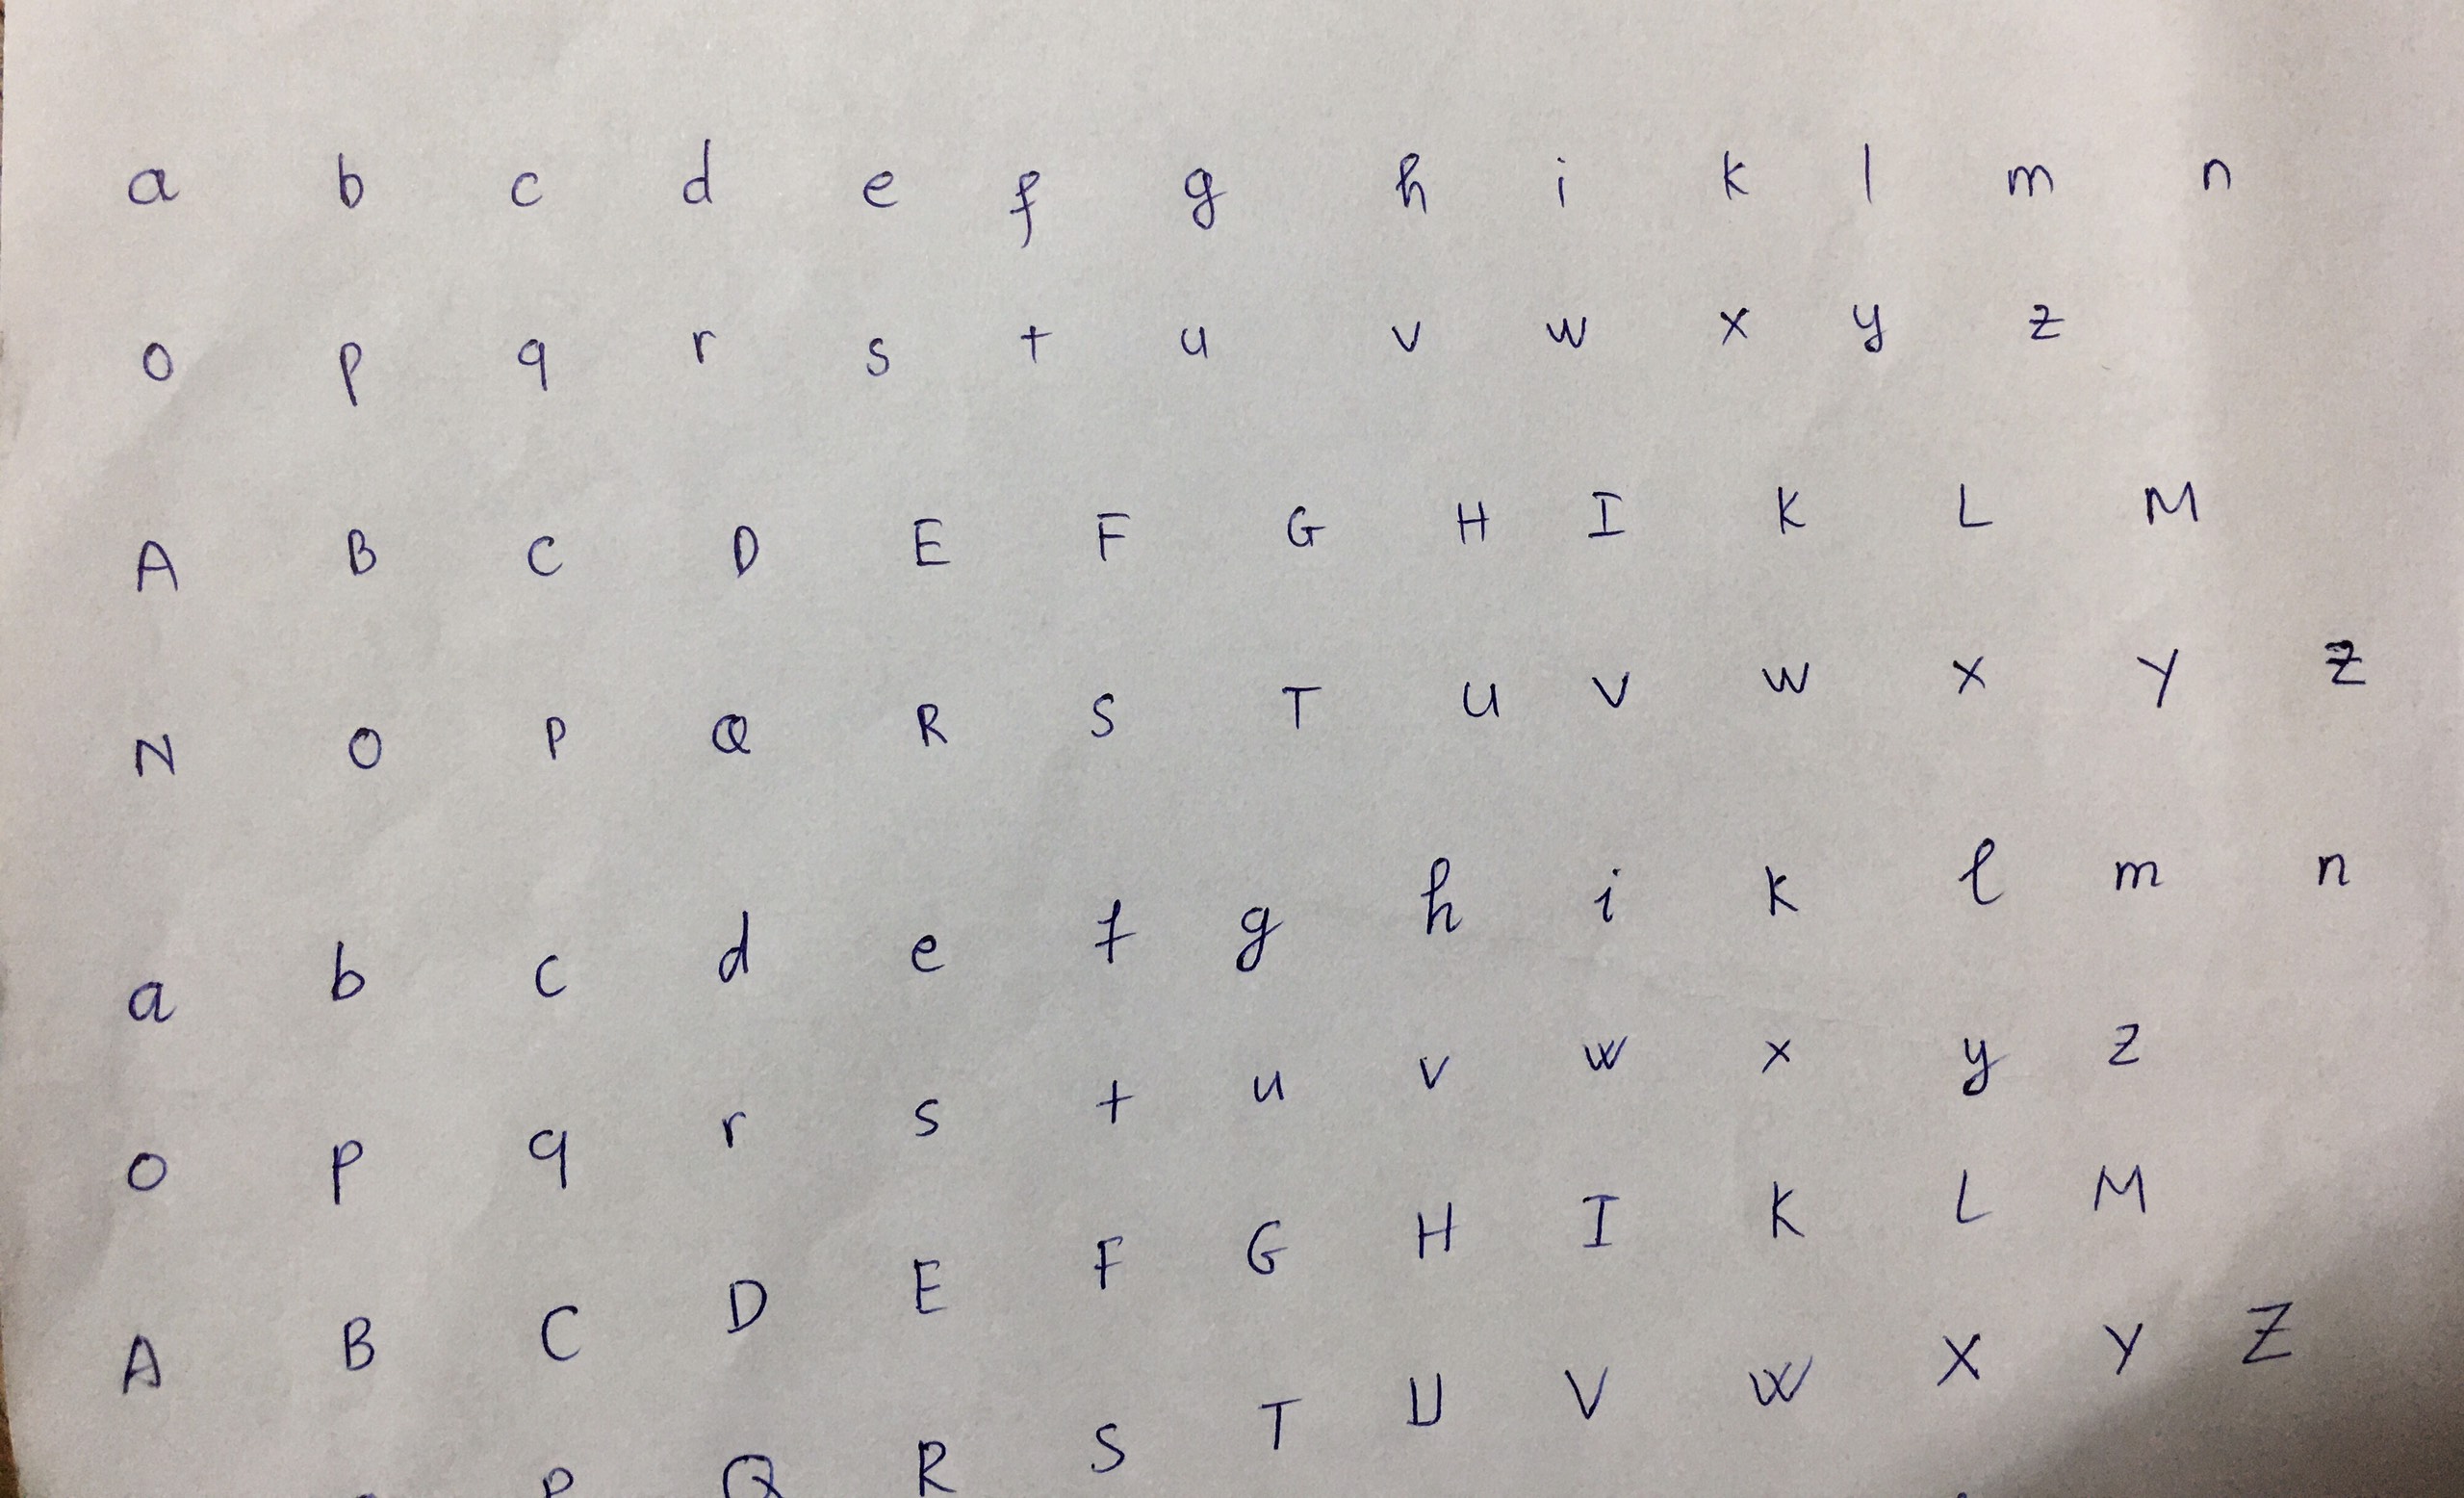 a b c d e f g h i k l m n
o p q r s t u v w x y z
A B C D E F G H I K L M
N O P Q R S T U V W X Y Z
a b c d e f g h i k l m n
o p q r s t u v w x y z
A B C D E F G H I K L M
P Q R S T U V W X Y Z